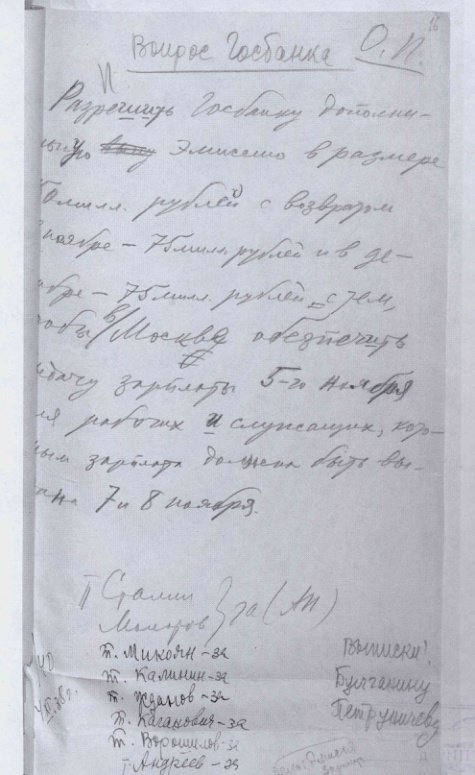 16
Вопрос Госбанка О.П.
Разрешить Госбанку дополни-
ную эмиссию в размере
0 милл. рублей с возвратом
ноябре – 75 милл. рублей и в де-
абре – 75 милл. рублей с тем,
обы в Москве обезпечить
дачу зарплаты 5-го ноября
ля рабочих и служащих, кото-
ым зарплата должна быть вы-
ана 7 и 8 ноября.
Сталин
Молотов } за (АП)
т. Микоян – за
т. Калинин – за
т. Жданов – за
т. Каганович – за
т. Ворошилов – за
т. Андреев – за
Выписки:
Булганину
Петруничеву